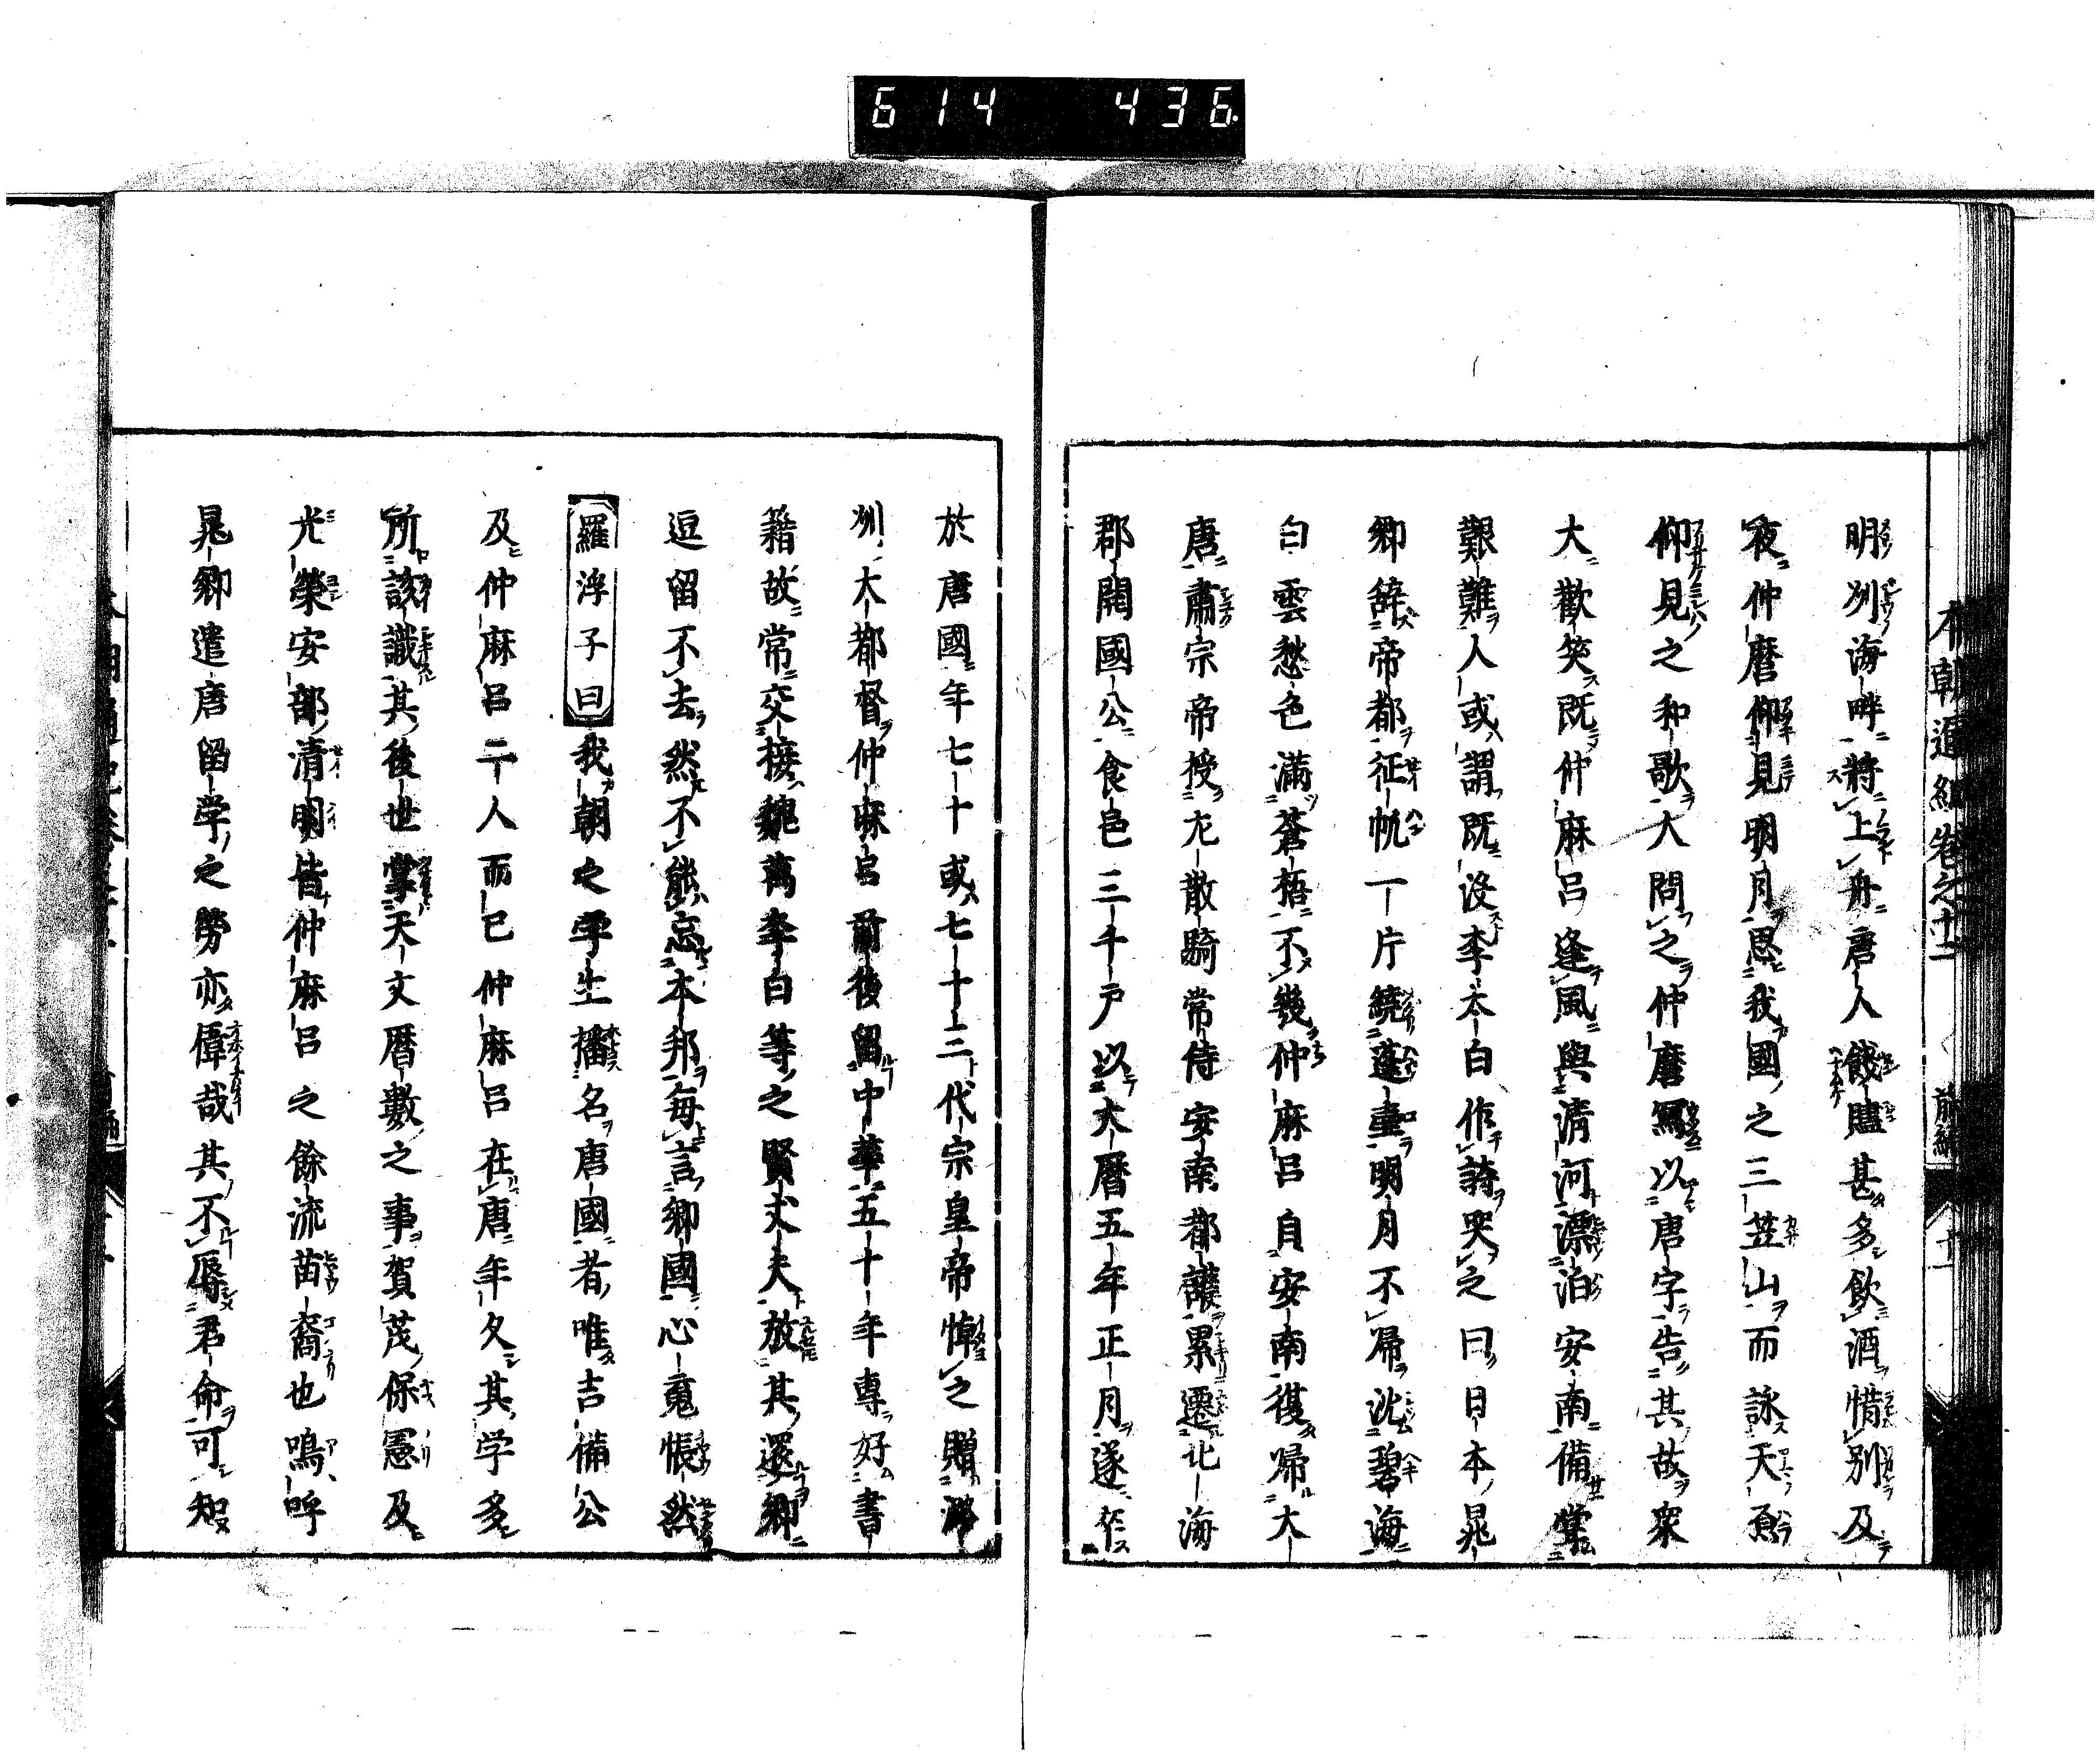 614 436
本朝通紀卷之十一 前編 十一
明洲海畔將上舟唐人餞贐甚多飲酒惜別及
夜仲麿仰見明月思我國之三笠山而詠天原
仰見之和歌大問之仲麿寫以唐字告其故衆
大歡笑既仲麻呂逢風與淸河漂泊安南備嘗
艱難人或謂既沒李太白作詩哭之曰日本晁
卿辭帝都征帆一片繞蓬壷明月不帰沈碧海
白雲愁色滿蒼梧不幾仲麻呂自安南復帰大
唐肅宗帝授尤散騎常侍安南都護累遷北海
郡開國公食邑三千戸以大曆五年正月遂卒
於唐國年七十或七十三代宗皇帝悼之贈潞
洲大都督仲麻呂前後留中華五十年專好書
籍故常交接魏萬李白等之賢丈夫放其還郷
逗留不去然不能忘本邦每言郷國心魂悵然
羅浮子曰我朝之学生播名唐國者唯吉備公
及仲麻呂二人而已仲麻呂在唐年久其学多
所該識其後世掌天文曆數之事賀茂保憲及
光榮安部清明皆仲麻呂之餘流苗裔也嗚呼
晁卿遣唐留学之勞亦偉哉其不辱君命可知